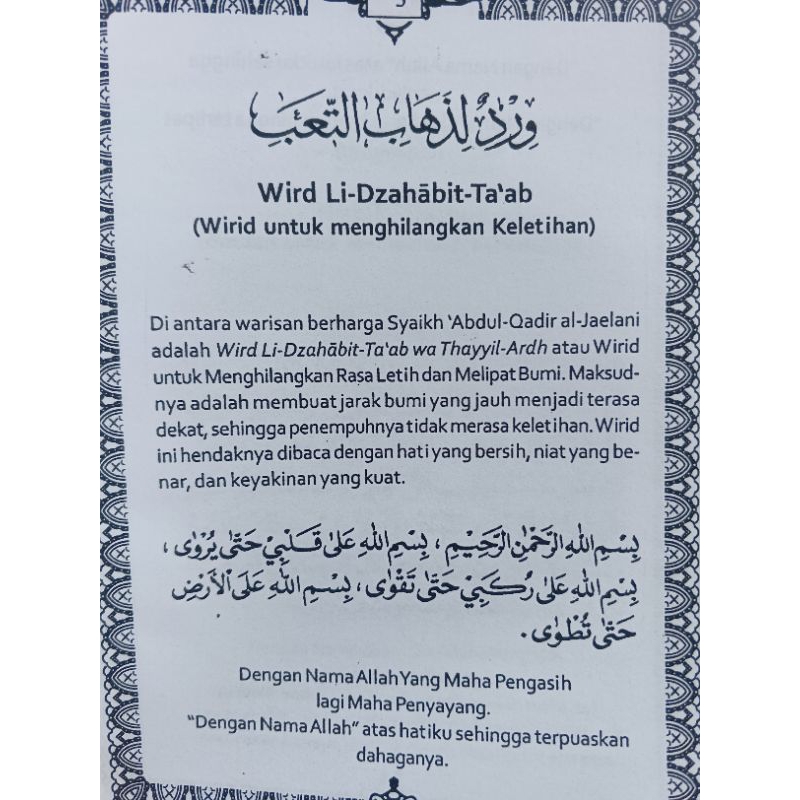 وِرْدٌ لِذَهَابِ التَّعَبِ
Wird Li-Dzahābit-Ta'ab
(Wirid untuk menghilangkan Keletihan)
Di antara warisan berharga Syaikh 'Abdul-Qadir al-Jaelani
adalah Wird Li-Dzahābit-Ta'ab wa Thayyil-Ardh atau Wirid
untuk Menghilangkan Rasa Letih dan Melipat Bumi. Maksud-
nya adalah membuat jarak bumi yang jauh menjadi terasa
dekat, sehingga penempuhnya tidak merasa keletihan. Wirid
ini hendaknya dibaca dengan hati yang bersih, niat yang be-
nar, dan keyakinan yang kuat.
بِسْمِ اللهِ الرَّحْمٰنِ الرَّحِيْمِ ، بِسْمِ اللهِ عَلَى قَلْبِيْ حَتَّى يُرْوَى ،
بِسْمِ اللهِ عَلَى رُكَبِيْ حَتَّى تَقْوَى ، بِسْمِ اللهِ عَلَى الْأَرْضِ
حَتَّى تُطْوَى .
Dengan Nama Allah Yang Maha Pengasih
lagi Maha Penyayang.
"Dengan Nama Allah" atas hatiku sehingga terpuaskan
dahaganya.